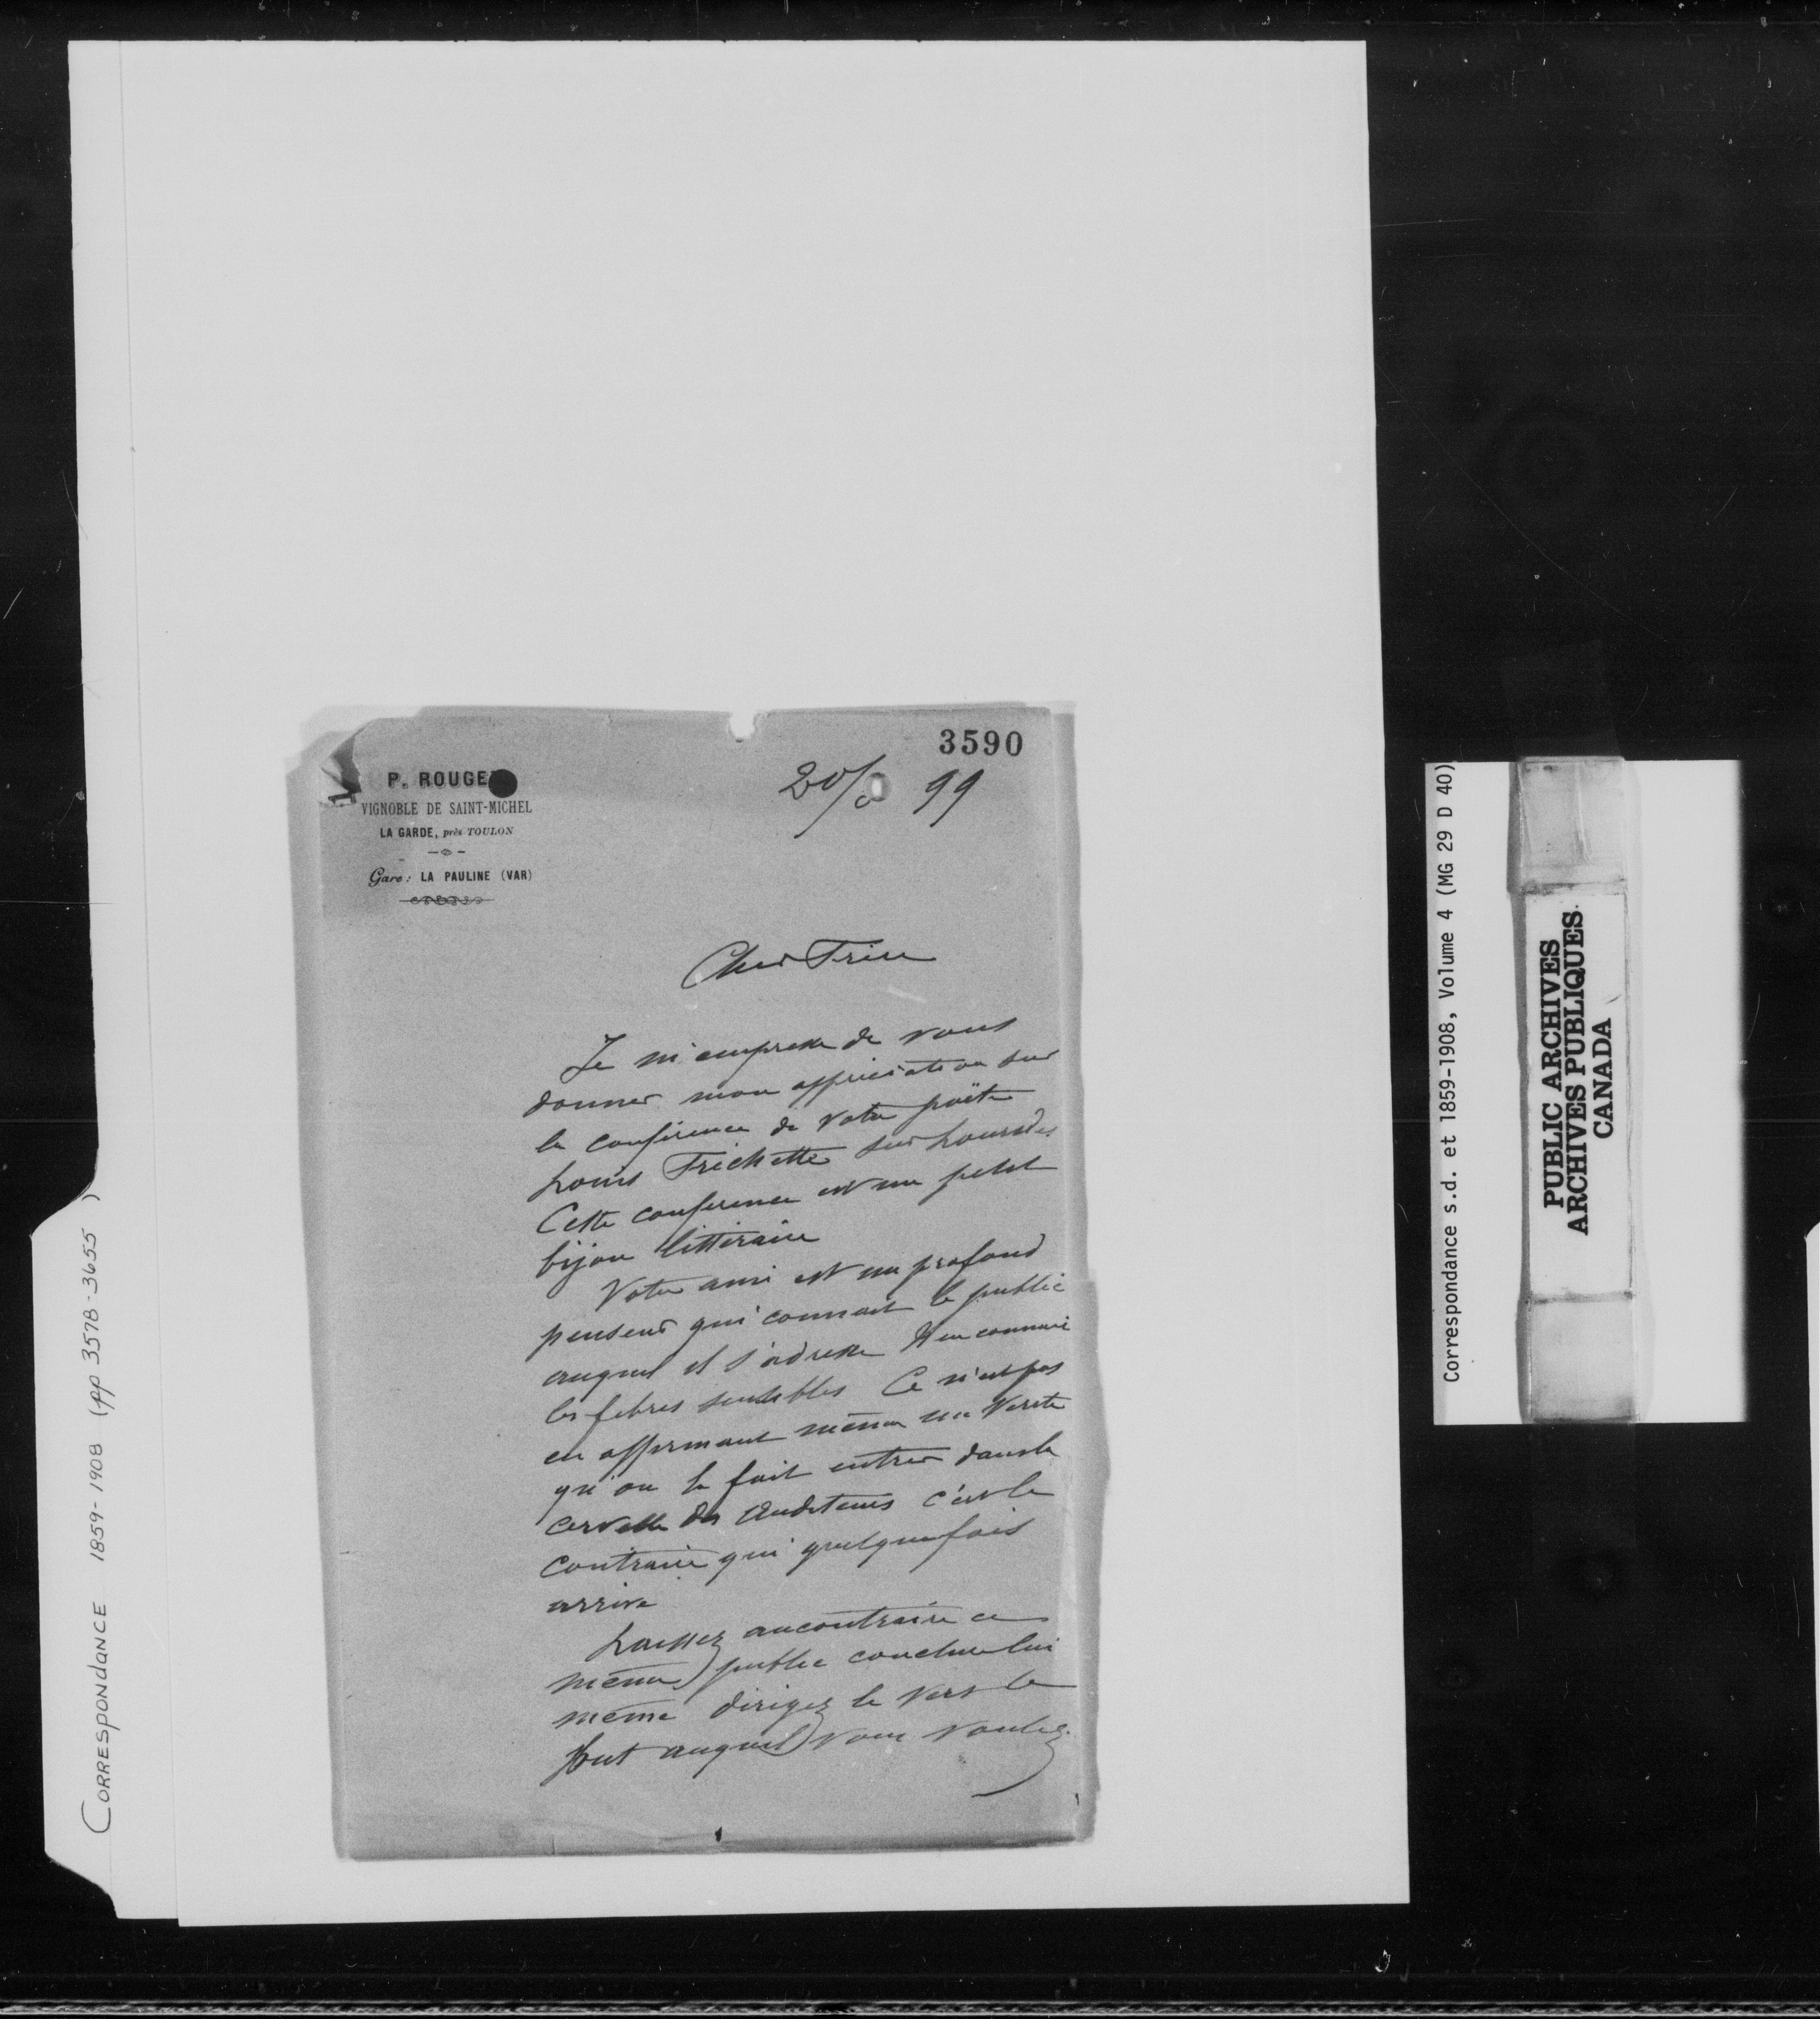 3590
P. ROUGE
VIGNOBLE DE SAINT-MICHEL
LA GARDE, près TOULON
Gare: LA PAULINE (VAR)
20/ 99
Cher
Je m'empresse de vous
donner mon appréciation sur
la conférence de votre poëte
Louis Fréchette sur Lourdes
Cette conférence est un petit
bijou littéraire
Votre ami est un profond
penseur qui connait le public
auquel il s'adresse Il en connait
les fibres sensibles Ce n'est pas
en affirmant même une Vérité
qu'on la fait entrer dans la
cervelle des Auditeurs c'est le
contraire qui quelquefois
arrive
Laissez aucontraire ce
même public conclure lui
même dirigez le vers le
but auquel vous voulez
CORRESPONDANCE 1859-1908 (pp 3578-3655)
Correspondance s.d. et 1859-1908, Volume 4 (MG 29 D 40)
PUBLIC ARCHIVES
ARCHIVES PUBLIQUES
CANADA